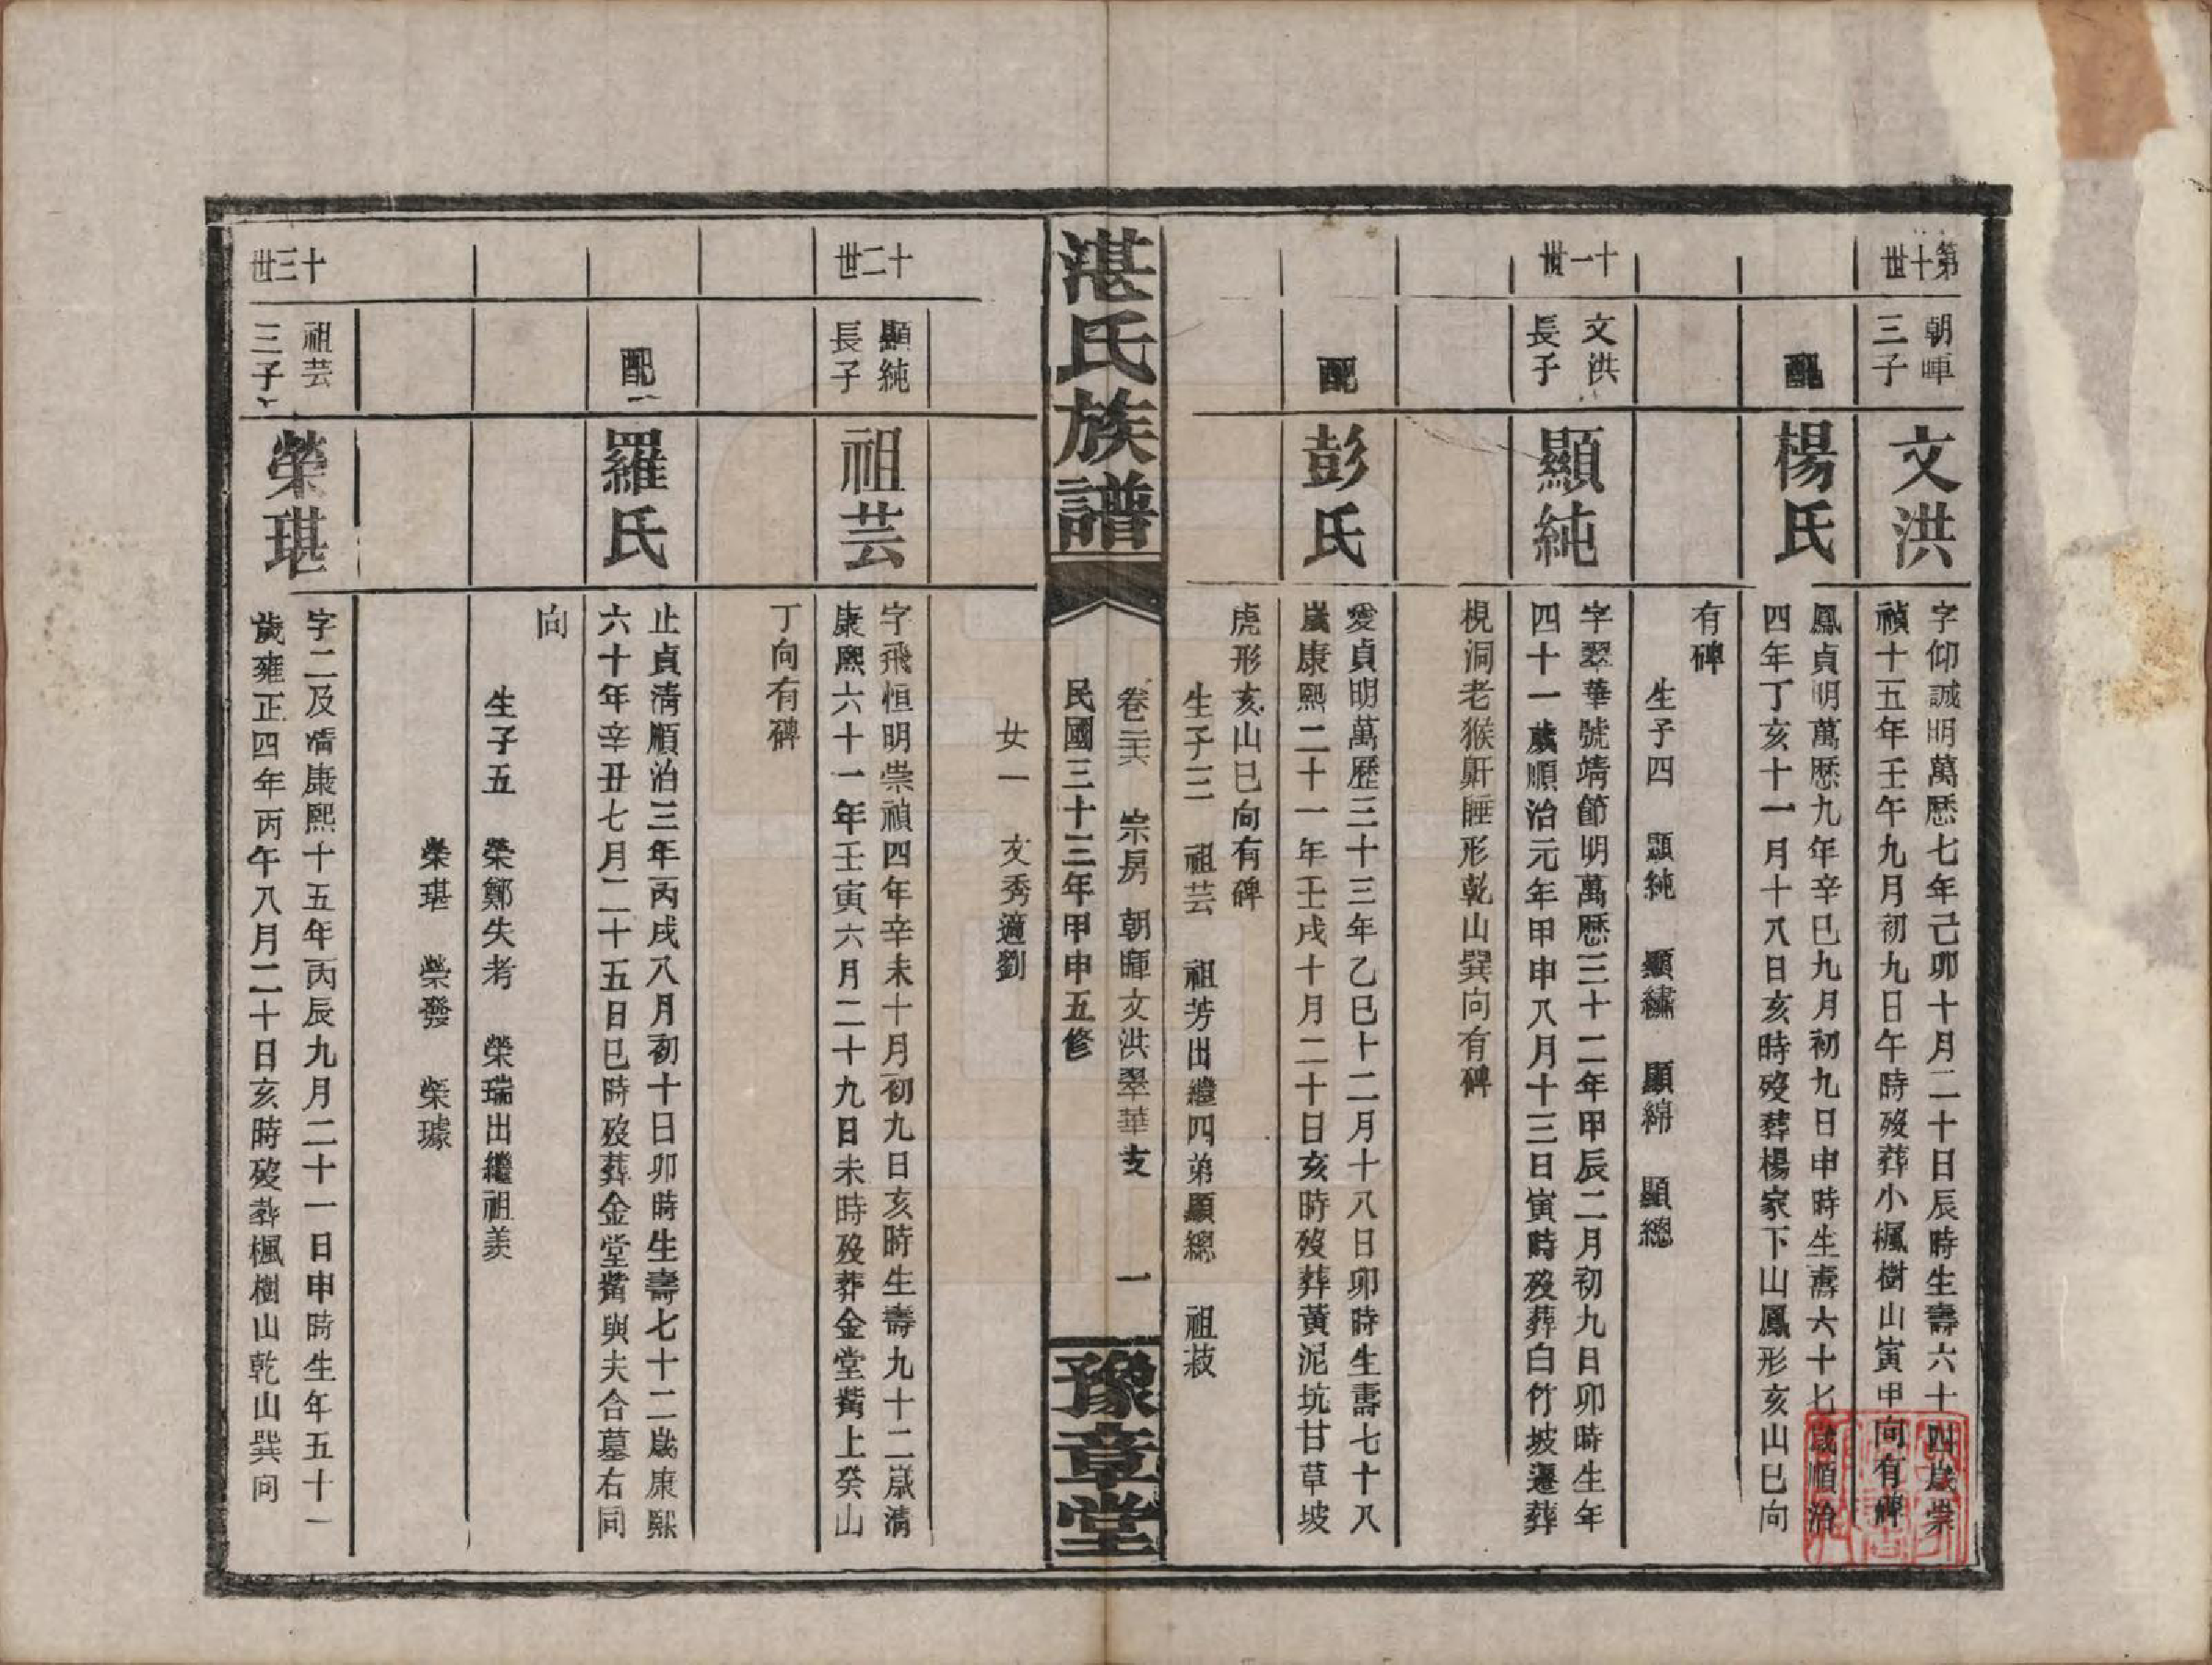 第十世
朝暉
三子
文洪
字仰誠明萬歷七年己卯十月二十日辰時生壽六十四歲崇
禎十五年壬午九月初九日午時歿葬小楓樹山寅甲向有碑
配
楊氏
鳳貞明萬歷九年辛巳九月初九日申時生壽六十七歲順治
四年丁亥十一月十八日亥時歿葬楊家下山鳳形亥山巳向
有碑
生子四 顯純 顯繡 顯綿 顯總
十一世
文洪
長子
顯純
字翠華號靖節明萬歷三十二年甲辰二月初九日卯時生年
四十一歲順治元年甲申八月十三日寅時歿葬白竹坡遷葬
梘洞老猴鼾睡形乾山巽向有碑
配
彭氏
愛貞明萬歷三十三年乙巳十二月十八日卯時生壽七十八
歲康熙二十一年壬戌十月二十日亥時歿葬黃泥坑甘草坡
虎形亥山巳向有碑
生子三 祖芸 祖芳出繼四弟顯總 祖菽
湛氏族譜
卷二六 宗房 朝暉文洪翠華支 一
民國三十三年甲申五修
豫章堂
女一 友秀適劉
十二世
顯純
長子
祖芸
字飛恒明崇禎四年辛未十月初九日亥時生壽九十二歲清
康熙六十一年壬寅六月二十九日未時歿葬金堂觜上癸山
丁向有碑
配
羅氏
止貞清順治三年丙戌八月初十日卯時生壽七十二歲康熙
六十年辛丑七月二十五日巳時歿葬金堂觜與夫合墓右同
向
生子五 榮鄭失考 榮瑞出繼祖羨
榮琪 榮發 榮璩
十三世
祖芸
三子
榮琪
字二及清康熙十五年丙辰九月二十一日申時生年五十一
歲雍正四年丙午八月二十日亥時歿葬楓樹山乾山巽向